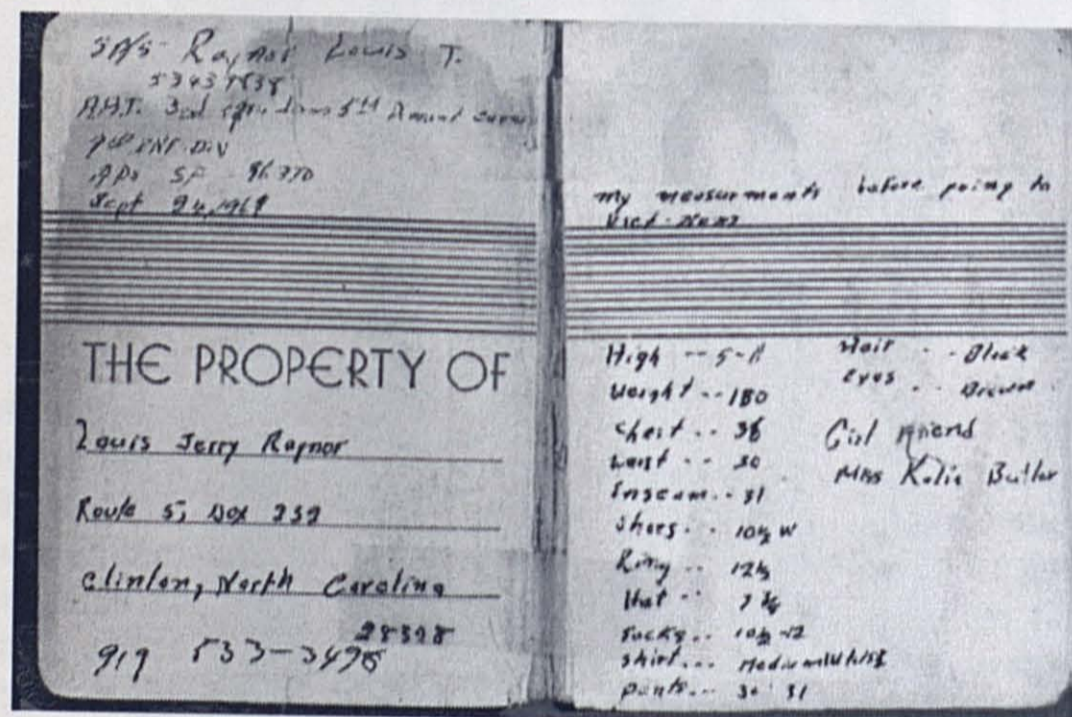 SP/5 Raynor Louis T.
53439838
3rd 5th Armored
9th INF. DIV
APO SF 96370
Sept 24, 1969
THE PROPERTY OF
Louis Jerry Raynor
Route 5, Box 232
Clinton, North Carolina
28328
919 533-3495
my measurments before going to
Viet-Nam
High -- 5-11
Weight -- 180
Chest -- 38
Waist -- 30
Inseam -- 31
Shoes -- 10½ W
Ring -- 12½
Hat --
Socks -- 10½-12
Shirt --- Medium
pants --- 30 31
Hair -- Black
Eyes -- Brown
Girl Friend
Miss Katie Butler